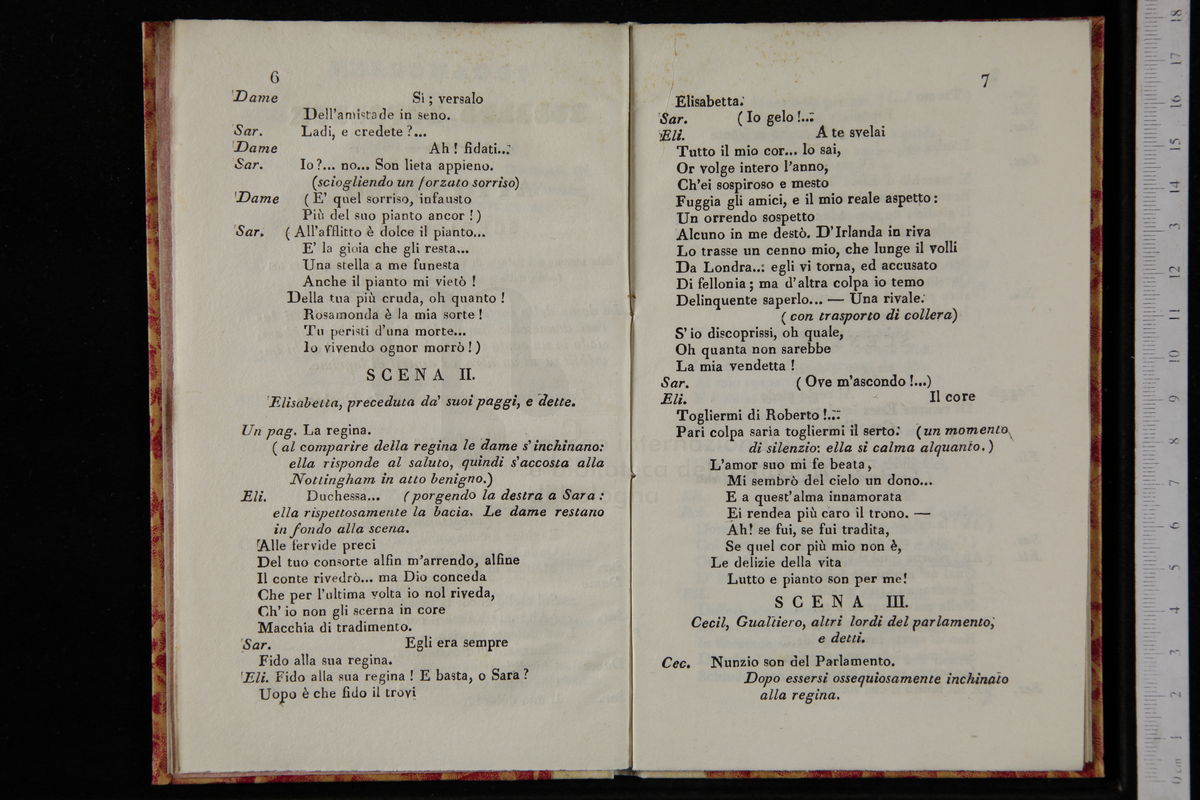 6
Dame Sì ; versalo
Dell'amistade in seno.
Sar. Ladi, e credete ?...
Dame Ah ! fidati...
Sar. Io ?... no... Son lieta appieno.
(sciogliendo un forzato sorriso)
Dame ( E' quel sorriso, infausto
Più del suo pianto ancor ! )
Sar. ( All'afflitto è dolce il pianto...
E' la gioia che gli resta...
Una stella a me funesta
Anche il pianto mi vietò !
Della tua più cruda, oh quanto !
Rosamonda è la mia sorte !
Tu peristi d'una morte...
Io vivendo ognor morrò ! )
SCENA II.
Elisabetta, preceduta da' suoi paggi, e dette.
Un pag. La regina.
( al comparire della regina le dame s'inchinano:
ella risponde al saluto, quindi s'accosta alla
Nottingham in atto benigno.)
Eli. Duchessa... (porgendo la destra a Sara :
ella rispettosamente la bacia. Le dame restano
in fondo alla scena.
Alle fervide preci
Del tuo consorte alfin m'arrendo, alfine
Il conte rivedrò... ma Dio conceda
Che per l'ultima volta io nol riveda,
Ch' io non gli scerna in core
Macchia di tradimento.
Sar. Egli era sempre
Fido alla sua regina.
Eli. Fido alla sua regina ! E basta, o Sara ?
Uopo è che fido il trovi
7
Elisabetta.
Sar. ( Io gelo !...
Eli. A te svelai
Tutto il mio cor... lo sai,
Or volge intero l'anno,
Ch'ei sospiroso e mesto
Fuggia gli amici, e il mio reale aspetto :
Un orrendo sospetto
Alcuno in me destò. D'Irlanda in riva
Lo trasse un cenno mio, che lunge il volli
Da Londra... egli vi torna, ed accusato
Di fellonia ; ma d'altra colpa io temo
Delinquente saperlo... — Una rivale.
( con trasporto di collera)
S' io discoprissi, oh quale,
Oh quanta non sarebbe
La mia vendetta !
Sar. ( Ove m'ascondo !...)
Eli. Il core
Togliermi di Roberto !...
Pari colpa saria togliermi il serto. (un momento
di silenzio: ella si calma alquanto.)
L'amor suo mi fe beata,
Mi sembrò del cielo un dono...
E a quest'alma innamorata
Ei rendea più caro il trono. —
Ah! se fui, se fui tradita,
Se quel cor più mio non è,
Le delizie della vita
Lutto e pianto son per me!
SCENA III.
Cecil, Gualtiero, altri lordi del parlamento,
e detti.
Cec. Nunzio son del Parlamento.
Dopo essersi ossequiosamente inchinato
alla regina.